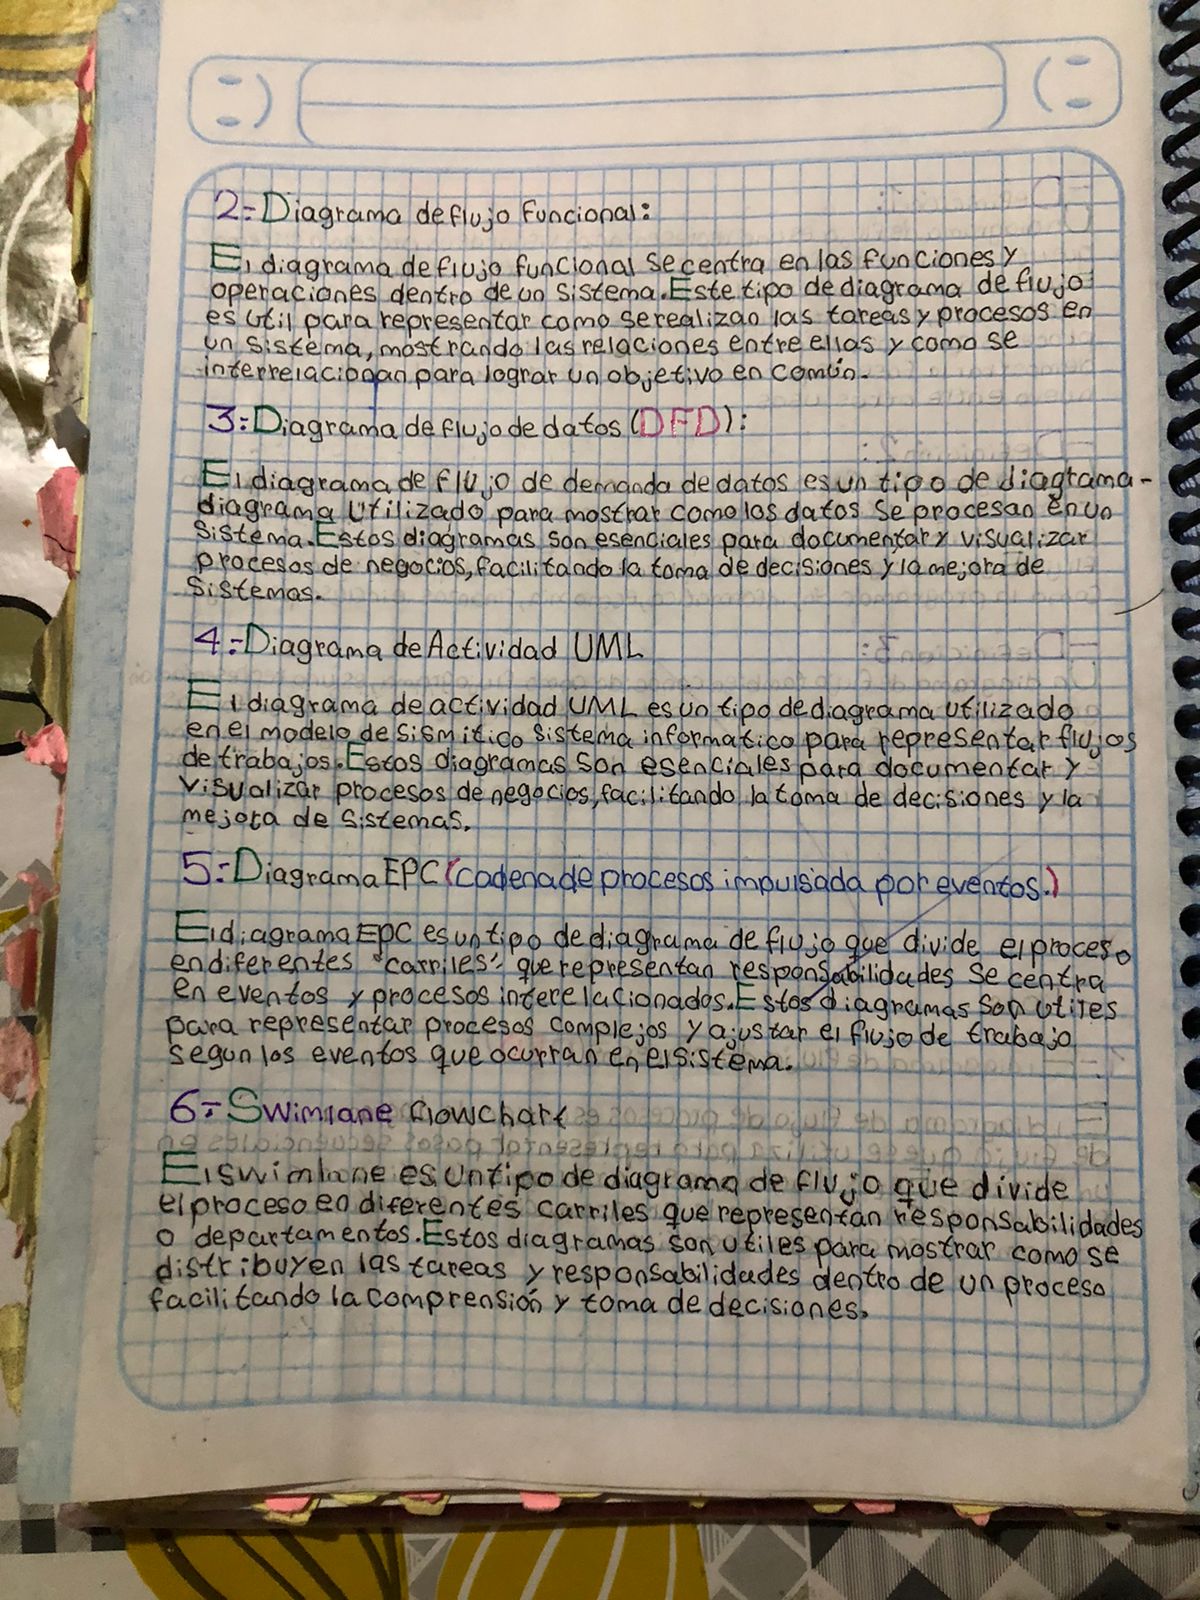 2-Diagrama de flujo Funcional:
El diagrama de flujo funcional se centra en las funciones y
operaciones dentro de un sistema. Este tipo de diagrama de flujo
es útil para representar como se realizan las tareas y procesos en
un sistema, mostrando las relaciones entre ellas y como se
interrelacionan para lograr un objetivo en común.
3-Diagrama de flujo de datos (DFD):
El diagrama de flujo de demanda de datos es un tipo de diagrama-
diagrama utilizado para mostrar como los datos se procesan en un
sistema. Estos diagramas son esenciales para documentar y visualizar
procesos de negocios, facilitando la toma de decisiones y la mejora de
sistemas.
4-Diagrama de Actividad UML
El diagrama de actividad UML es un tipo de diagrama utilizado
en el modelo de sismitico sistema informatico para representar flujos
de trabajos. Estos diagramas son esenciales para documentar y
visualizar procesos de negocios, facilitando la toma de decisiones y la
mejora de sistemas.
5-Diagrama EPC (cadena de procesos impulsada por eventos.)
El diagrama EPC es un tipo de diagrama de flujo que divide el proceso
en diferentes "carriles" que representan responsabilidades se centra
en eventos y procesos interelacionados. Estos diagramas son utiles
para representar procesos complejos y ajustar el flujo de trabajo
segun los eventos que ocurran en el sistema.
6-Swimlane flowchart
El swimlane es un tipo de diagrama de flujo que divide
el proceso en diferentes carriles que representan responsabilidades
o departamentos. Estos diagramas son utiles para mostrar como se
distribuyen las tareas y responsabilidades dentro de un proceso
facilitando la comprensión y toma de decisiones.